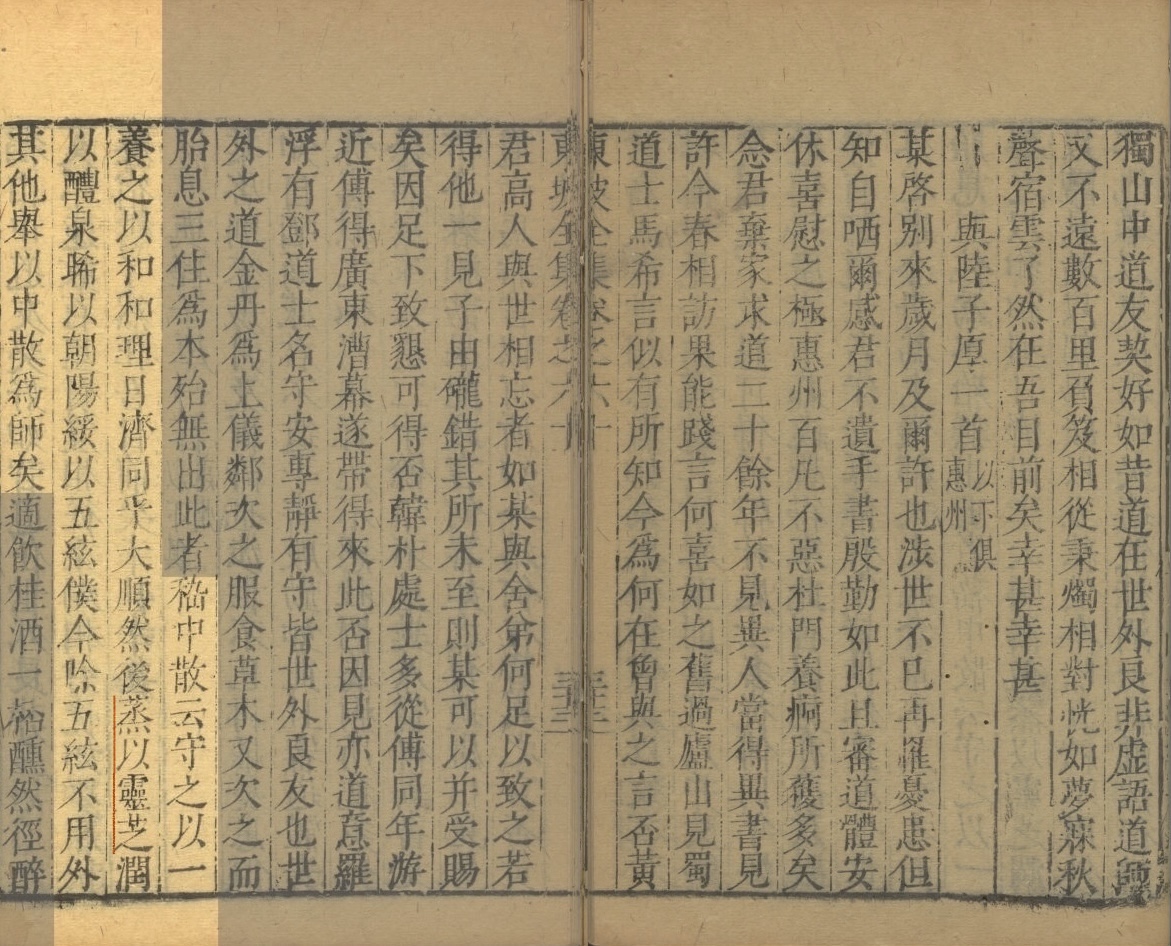 獨山中道友契好如昔道在世外良非虛語道竇
又不遠數百里負笈相從秉燭相對恍如夢寐秋
聲宿雲了然在吾目前矣幸甚幸甚
與陸子厚一首以下俱惠州
某啓别來歲月及爾許也涉世不已再罹憂患但
知自哂爾感君不遺手書殷勤如此且審道體安
休喜慰之極惠州百凡不惡杜門養痾所獲多矣
念君棄家求道二十餘年不見異人當得異書見
許今春相訪果能踐言何喜如之舊過廬山見蜀
道士馬希言似有所知今爲何在曾與之言否黃
東坡全集卷之六十
三十三
君高人與世相忘者如某與舍弟何足以致之若
得他一見子由礲錯其所未至則某可以并受賜
矣因足下致懇可得否韓朴處士多從傅同年游
近傅得廣東漕幕遂帶得來此否因見亦道意羅
浮有鄧道士名守安專靜有守皆世外良友也世
外之道金丹爲上儀鄰次之服食草木又次之而
胎息三住爲本殆無出此者嵇中散云守之以一
養之以和和理日濟同乎大順然後蒸以靈芝潤
以醴泉晞以朝陽綏以五絃僕今除五絃不用外
其他舉以中散爲師矣適飲桂酒一桮醺然徑醉